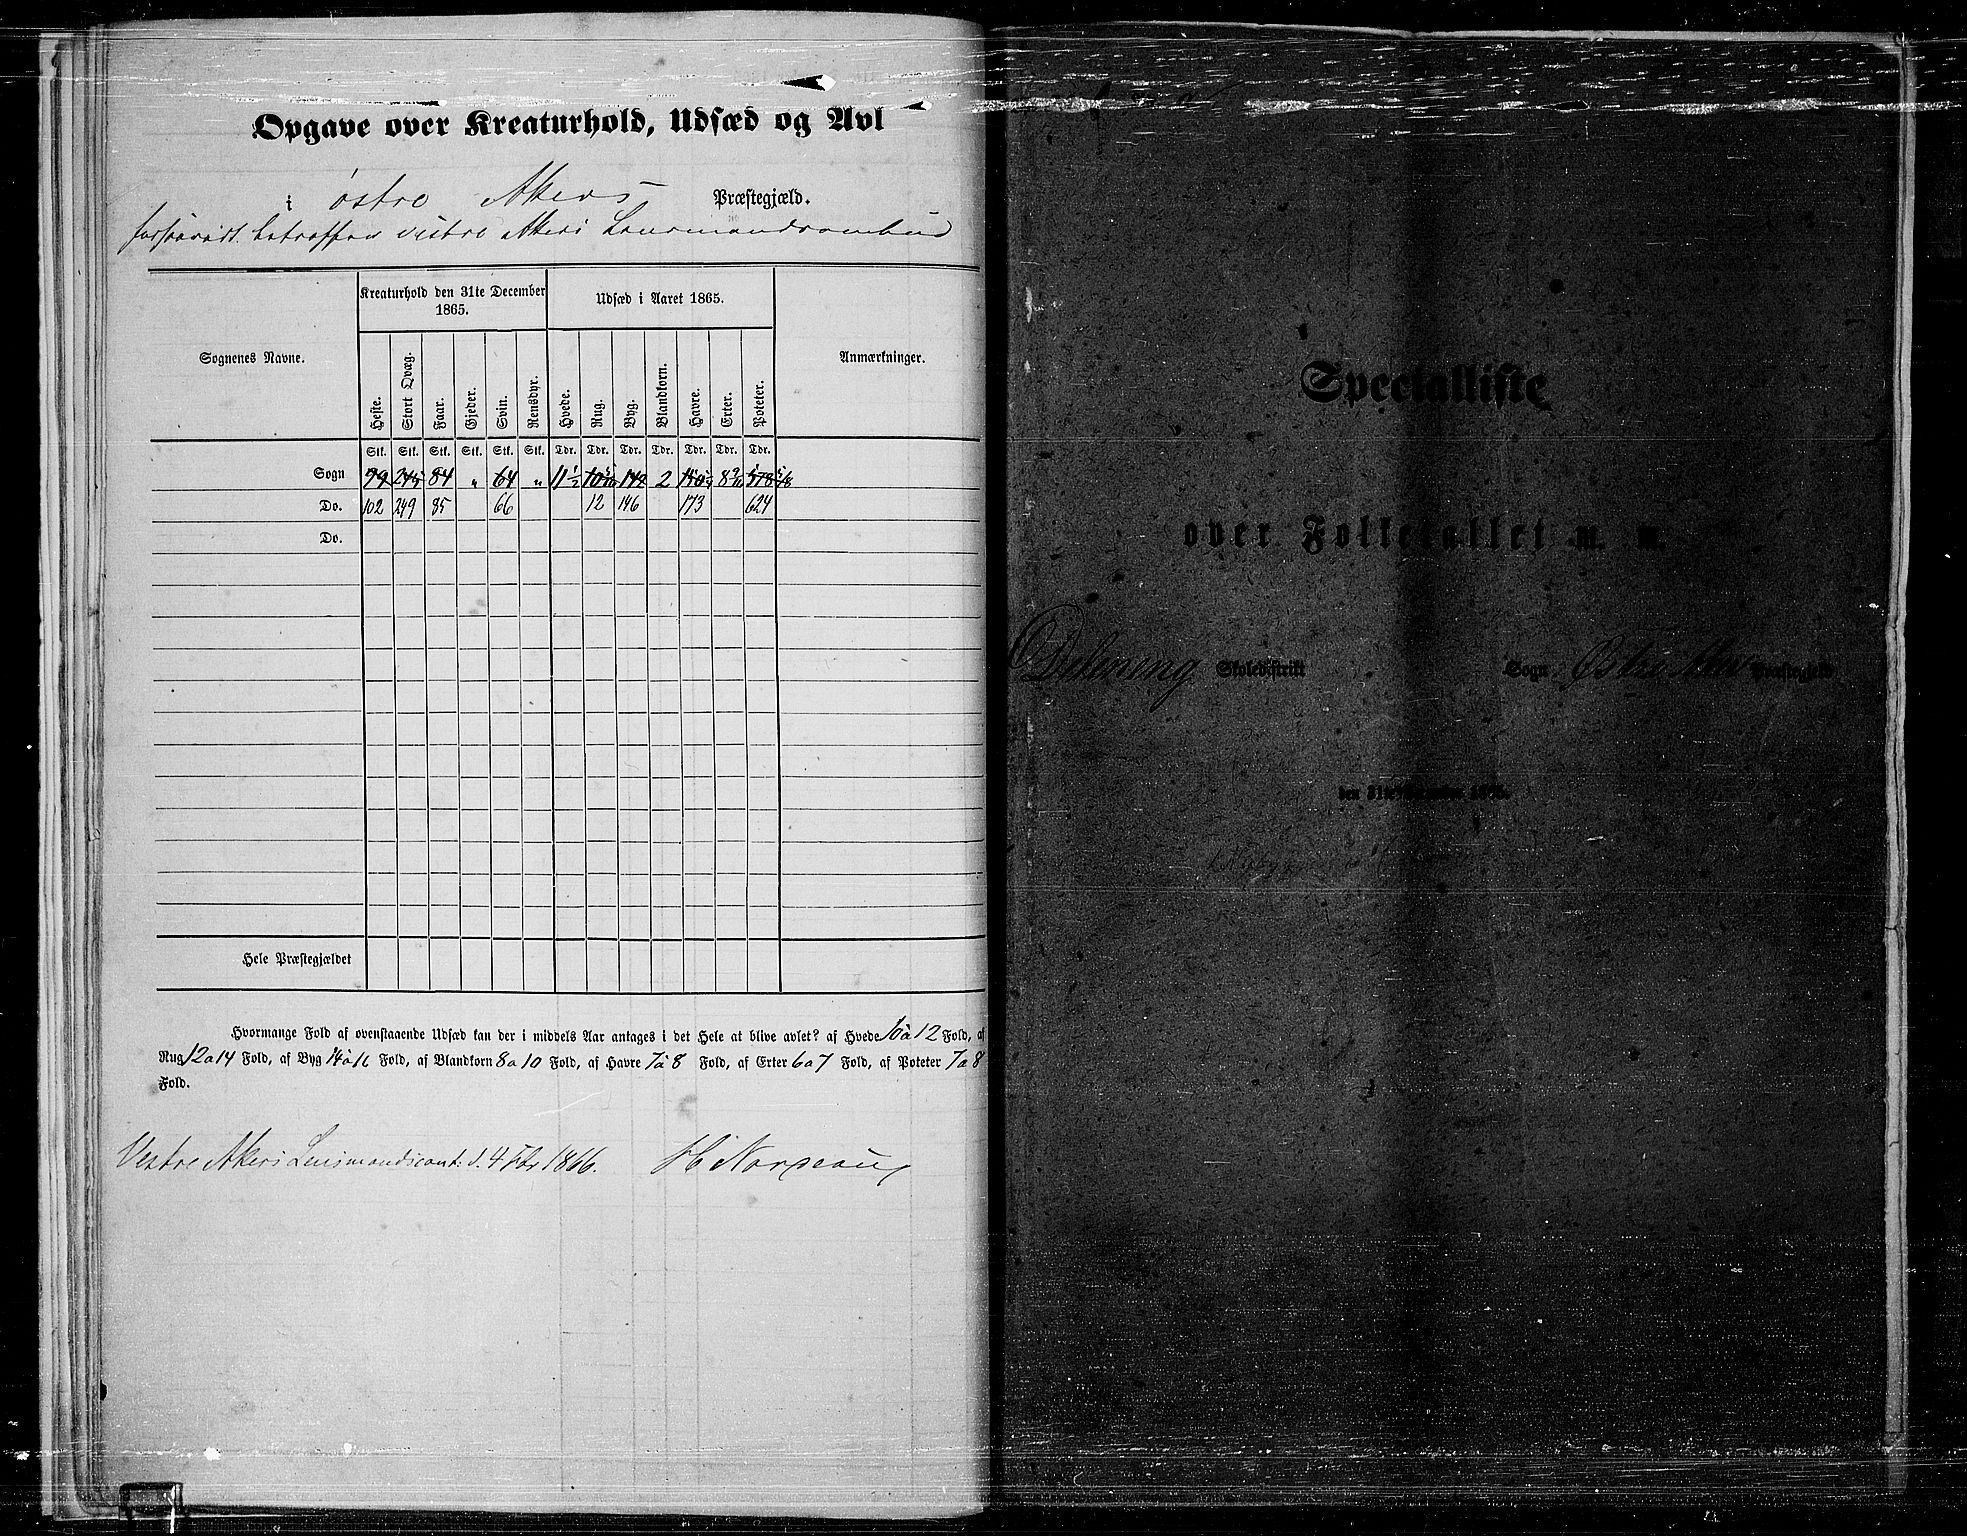 Opgave over Kreaturhold, Udsæd og Avl
i østre Akers Præstegjæld.
betræffer Vestre Akers Lensmandsombud
Sognenes Navne.
Kreaturhold den 31te December 1865.
Udsæd i Aaret 1865.
Anmærkninger.
Heste. Stort Qvæg. Faar. Gjeder. Svin. Rensdyr. Hvede. Rug. Byg. Blandkorn. Havre. Erter. Poteter.
Stk. Stk. Stk. Stk. Stk. Stk. Tdr. Tdr. Tdr. Tdr. Tdr. Tdr. Tdr.
Sogn 99 245 84 " 64 " 11 1/2 142 2
Do. 102 249 85 66 12 146 173 624
Do.
Hele Præstegjældet
Hvormange Fold af ovenstaaende Udsæd kan der i middels Aar antages i det Hele at blive avlet? af Hvede 10 à 12 Fold, af
Rug 12 a 14 Fold, af Byg 14 a 16 Fold, af Blandkorn 8 a 10 Fold, af Havre 7 à 8 Fold, af Erter 6 a 7 Fold, af Poteter 7 a 8
Fold.
Vestre Akers Lensmandscont: d. 4 Fbr 1866.
Specialliste
over Folketallet m. m.
Skoledistrikt Sogn Østre Aker Præstegjeld
den 31te December 1865.